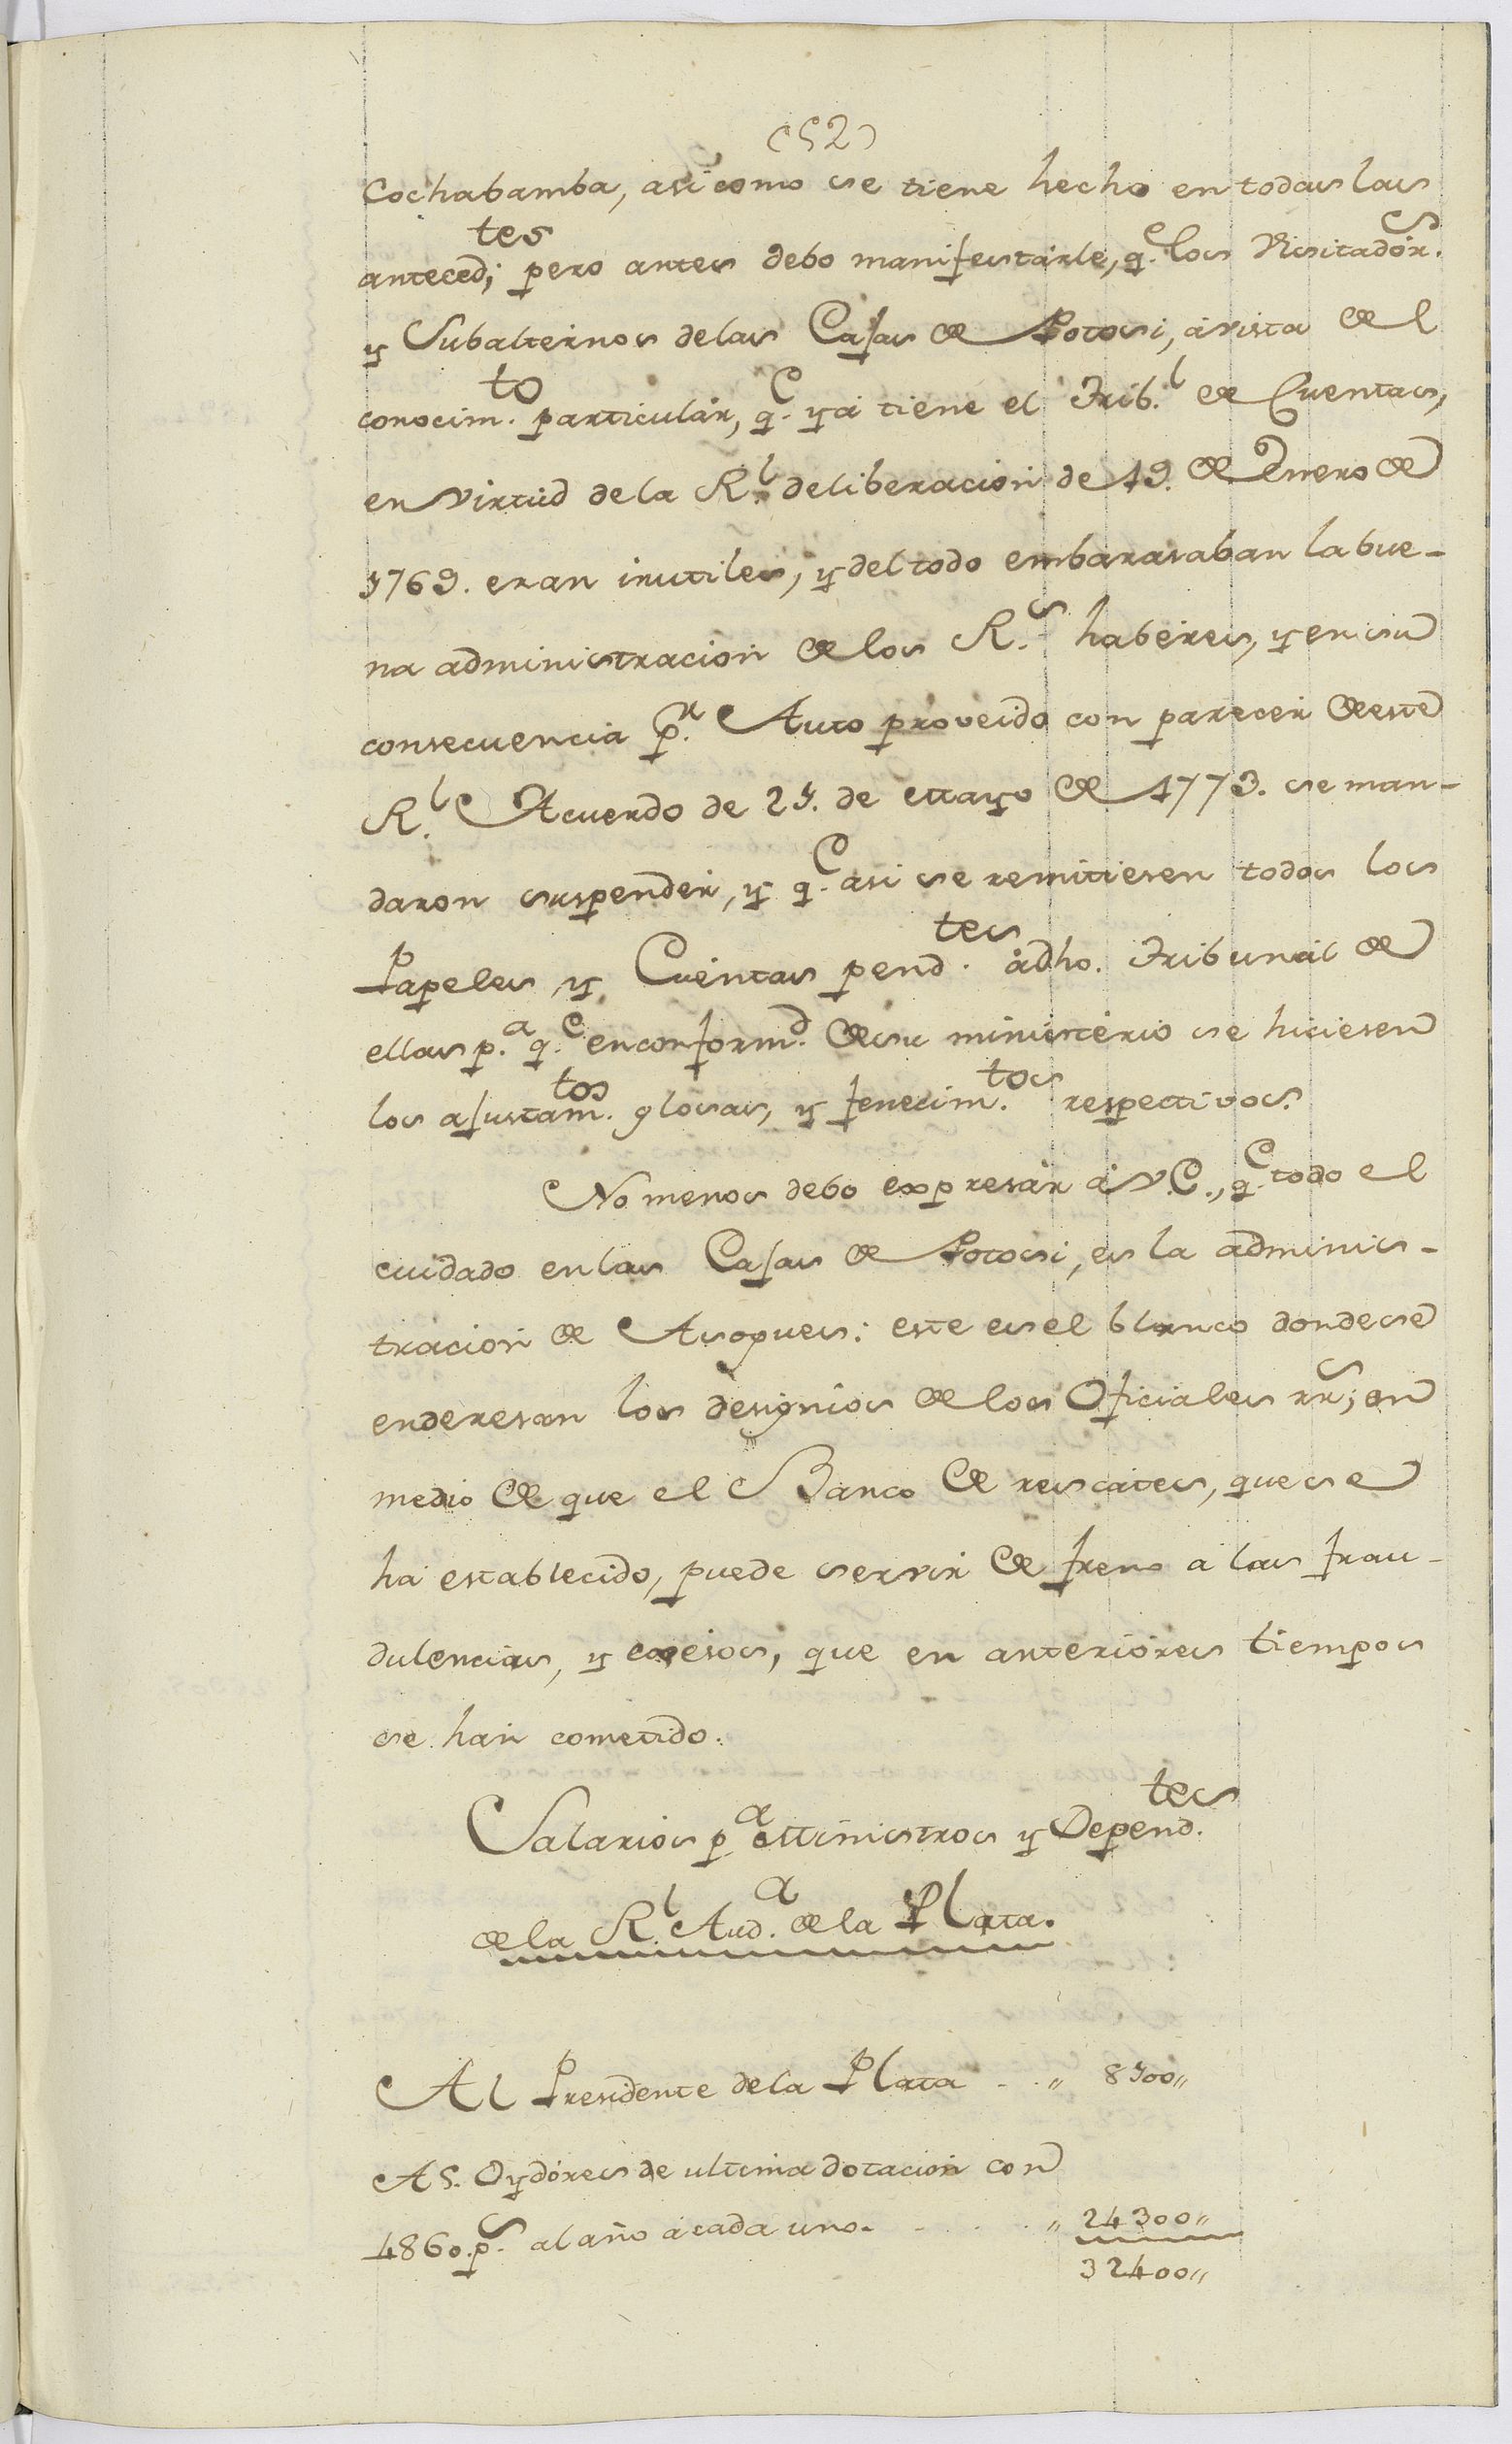 (52)
Cochabamba, asi como se tiene hecho en todas las
anteced.tes; pero antes debo manifestarle, q.e los Visitador.s
y Subalternos de las Cajas de Potosi, á vista de el
conocim.to particular, q.e ya tiene el Trib.l de Cuentas,
en virtud de la R.l deliberacion de 19. de Enero de
1769. eran inutiles, y del todo embarasaban la bue-
na administracion de los R.s haberes, y en su
consecuencia p.r Auto proveido con parecer de este
R.l Acuerdo de 21. de Mayo de 1773. se man-
daron suspender, y q.e asi se remitiesen todos los
Papeles, y Cuentas pend.tes á dho. Tribunal de
ellas p.a q.e en conform.d de su ministerio se hiciesen
los ajustam.tos glosas, y fenecim.tos respectivos.
No menos debo expresar á V.E., q.e todo el
cuidado en las Cajas de Potosi, es la adminis-
tracion de Asogues: este es el blanco donde se
enderesan los designios de los Oficiales rr.s; en
medio de que el Banco de rescates, que se
ha establecido, puede servir de freno á las frau-
dulencias, y exesos, que en anteriores tiempos
se han cometido.
Salarios p.a Ministros y Depend.tes
de la R.l Aud.a de la Plata.
Al Presidente de la Plata - .. „ 8100„
A 5. Oydores de ultima dotacion con
4860. p.s al año á cada uno. . . . . „ 24300„
32400„